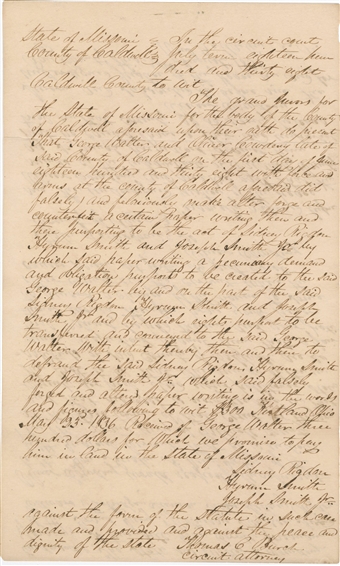 State of Missouri } In the circuit court
County of Caldwell } July term eighteen hun
dred and thirty eight
Caldwell County to wit
The grand jurors for
the State of Missouri for the body of the County
of Caldwell aforesaid upon their oath do present
that George Walter and Oliver Cowdery late of
said County of Caldwell on the first day of June
eighteen hundred and thirty eight with force and
arms at the county of Caldwell aforesaid did
falsely and feloniously make alter forge and
counterfeit a certain paper writing then and
there purporting to be the act of Sidney Rigdon
Hyrum Smith and Joseph Smith Jr by
which said paper writing a pecuniary demand
and obligation purports to be created to the said
George Walter by and on the part of the said
Sidney Rigdon Hyrum Smith and Joseph
Smith Jr and by which rights purport to be
transferred and conveyed to the said George
Walter With intent thereby then and there to
defraud the said Sidney Rigdon Hyrum Smith
and Joseph Smith Jr Which said falsely
forged and altered paper writing is in the words
and figures following to wit $300 Kirtland Ohio
Mar 1836 Received of George Walter three
hundred dollars for Which we promise to pay
him in Land in the State of Missouri
Sidney Rigdon
Hyrum Smith
Joseph Smith Jr
against the form of the Statute in such case
made and provided and against the peace and
dignity of the State Thomas C Burch
circuit attorney